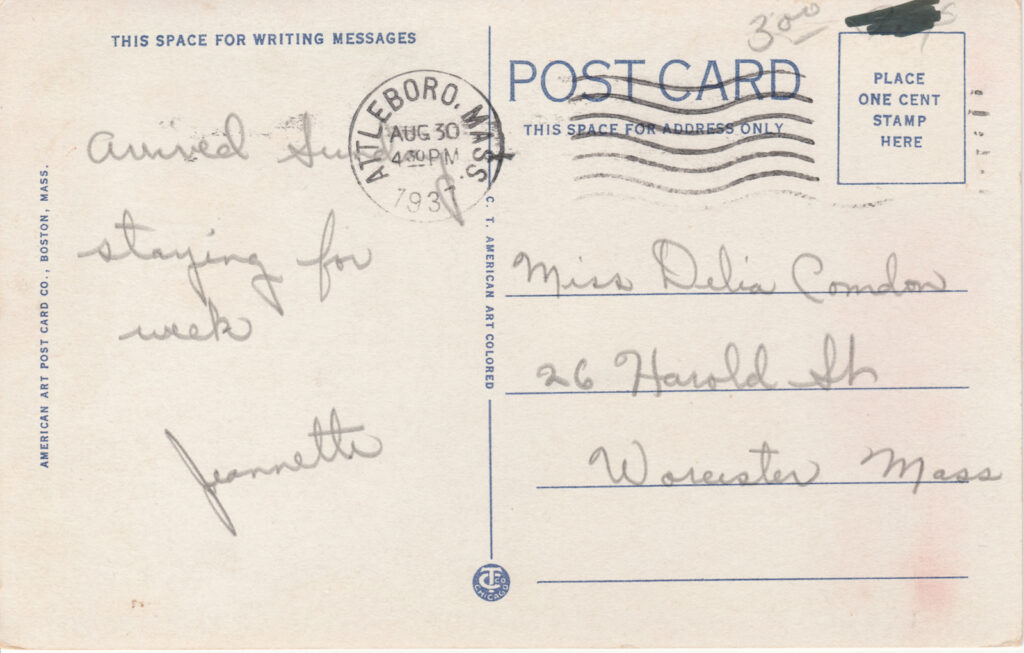 THIS SPACE FOR WRITING MESSAGES
Arrived Sunday
staying for
week
Jeannette
AMERICAN ART POST CARD CO., BOSTON, MASS.
ATTLEBORO, MASS.
AUG 30
4 30 PM
1937
C. T. AMERICAN ART COLORED
CTCO
CHICAGO
300
POST CARD
THIS SPACE FOR ADDRESS ONLY
PLACE
ONE CENT
STAMP
HERE
Miss Delia Comdon
26 Harold St
Worcester Mass